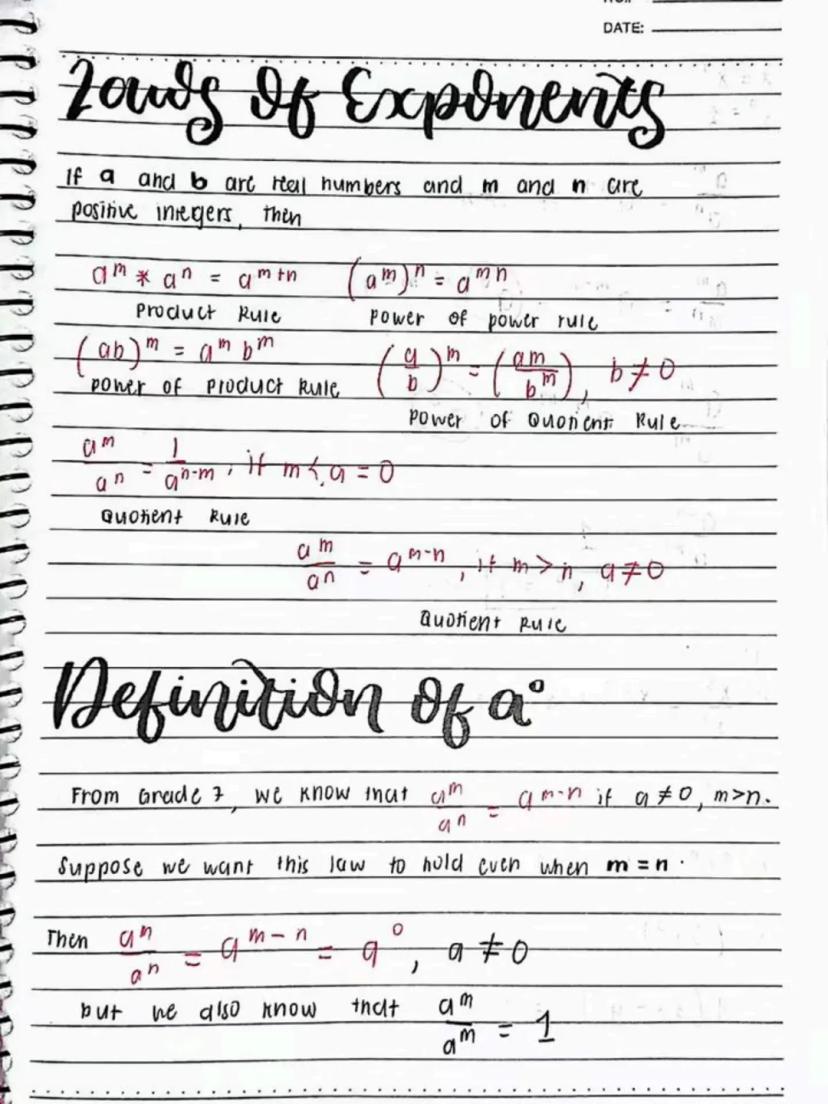 DATE:
Laws Of Exponents
If a and b are real numbers and m and n are
positive integers, then
a^m * a^n = a^m+n (a^m)^n = a^mn
Product Rule Power of power rule
(ab)^m = a^m b^m (a/b)^m = (am/b^m), b ≠ 0
power of product Rule
Power of Quotient Rule
a^m/a^n = 1/a^n-m, if m < a = 0
Quotient Rule
a^m/a^n = a^m-n, if m > n, a ≠ 0
Quotient Rule
Definition Of a°
From Grade 7, we know that a^m/a^n = a^m-n if a ≠ 0, m>n.
Suppose we want this law to hold even when m = n.
Then a^n/a^n = a^m-n = a^0, a ≠ 0
but we also know that a^m/a^m = 1